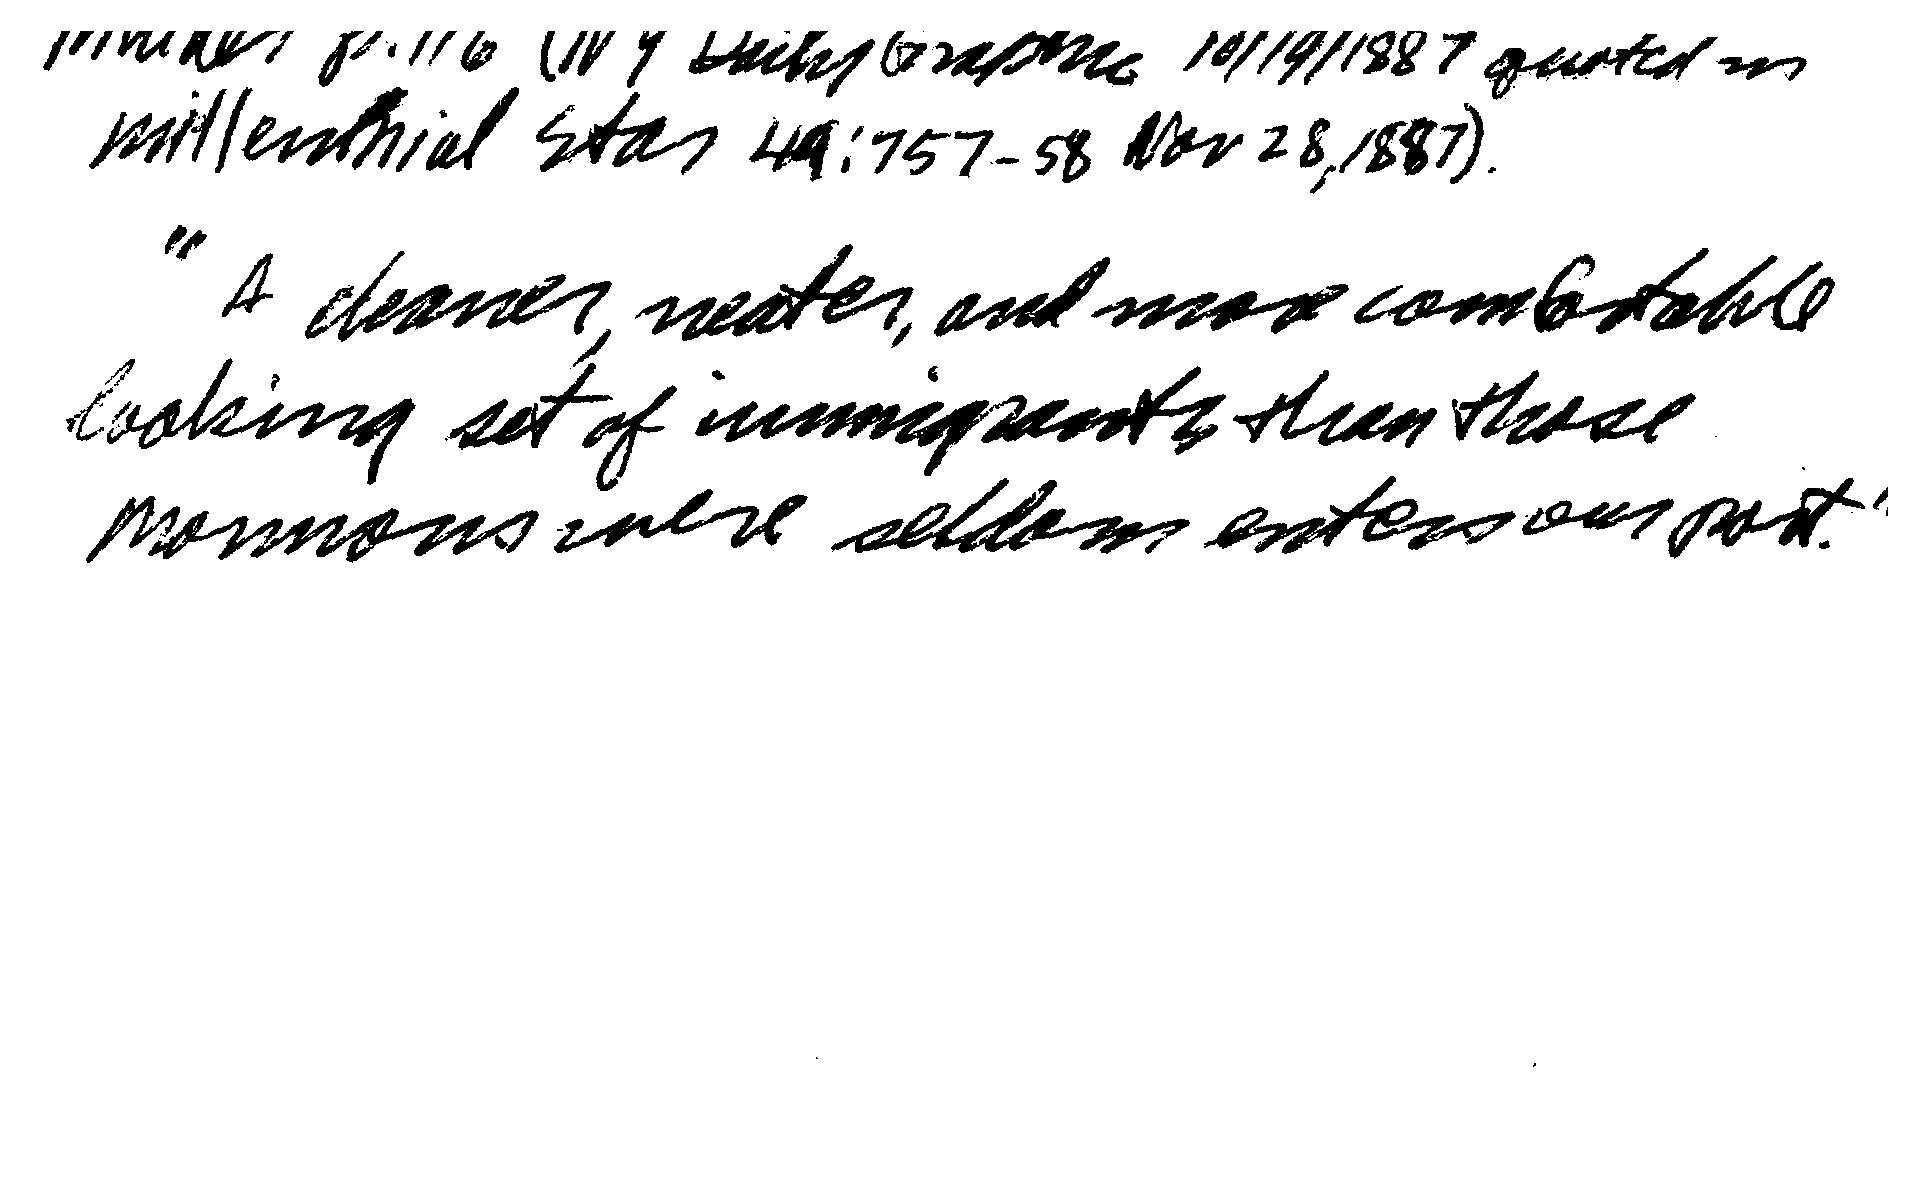 Mulder p. 116 (NY Daily Graphic 10/19/1887 quoted in
Millennial Star 49:757-58 Nov 28, 1887).
"A cleaner, neater, and more comfortable
looking set of immigrants than those
Mormons were seldom enters our port."